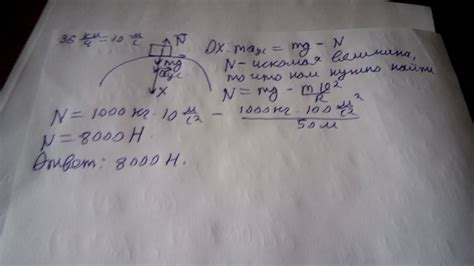 36 км/ч = 10 м/с
N
mg
aцс
x
OX: maцс = mg - N
N - искомая величина,
то что нам нужно найти
N = mg - mv²/R
N = 1000 кг · 10 м/с² - 1000 кг · 100 м²/с² / 50 м
N = 8000 Н.
Ответ: 8000 Н.